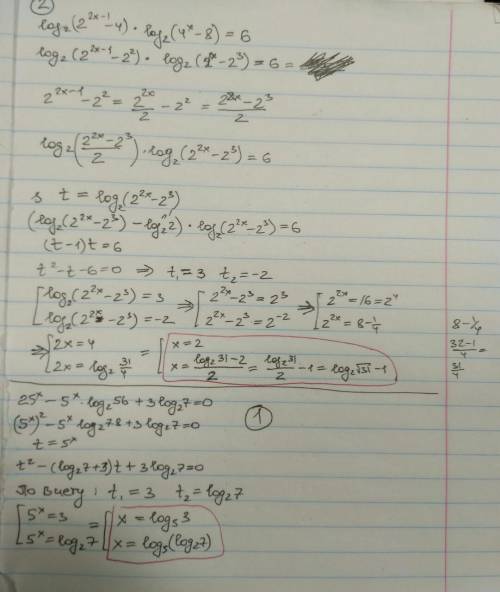 ②
log₂(2^(2x-1) - 4) · log₂(4^x - 8) = 6
log₂(2^(2x-1) - 2²) · log₂(2^(2x) - 2³) = 6 =
2^(2x-1) - 2² = 2^(2x)/2 - 2² = (2^(2x) - 2³)/2
log₂((2^(2x) - 2³)/2) · log₂(2^(2x) - 2³) = 6
з t = log₂(2^(2x) - 2³)
(log₂(2^(2x) - 2³) - log₂2) · log₂(2^(2x) - 2³) = 6
(t - 1)t = 6
t² - t - 6 = 0 ⇒ t₁ = 3 t₂ = -2
[log₂(2^(2x) - 2³) = 3 ⇒ [2^(2x) - 2³ = 2³ ⇒ [2^(2x) = 16 = 2⁴
log₂(2^(2x) - 2³) = -2 2^(2x) - 2³ = 2^(-2) 2^(2x) = 8 - 1/4
8 - 1/4
(32 - 1)/4 =
31/4
⇒ [2x = 4 = [x = 2
2x = log₂ 31/4 x = (log₂31 - 2)/2 = log₂31/2 - 1 = log₂√31 - 1
25^x - 5^x · log₂56 + 3log₂7 = 0
①
(5^x)² - 5^x log₂7·8 + 3log₂7 = 0
t = 5^x
t² - (log₂7 + 3)t + 3log₂7 = 0
По виету: t₁ = 3 t₂ = log₂7
[5^x = 3 = [x = log₅3
5^x = log₂7 x = log₅(log₂7)